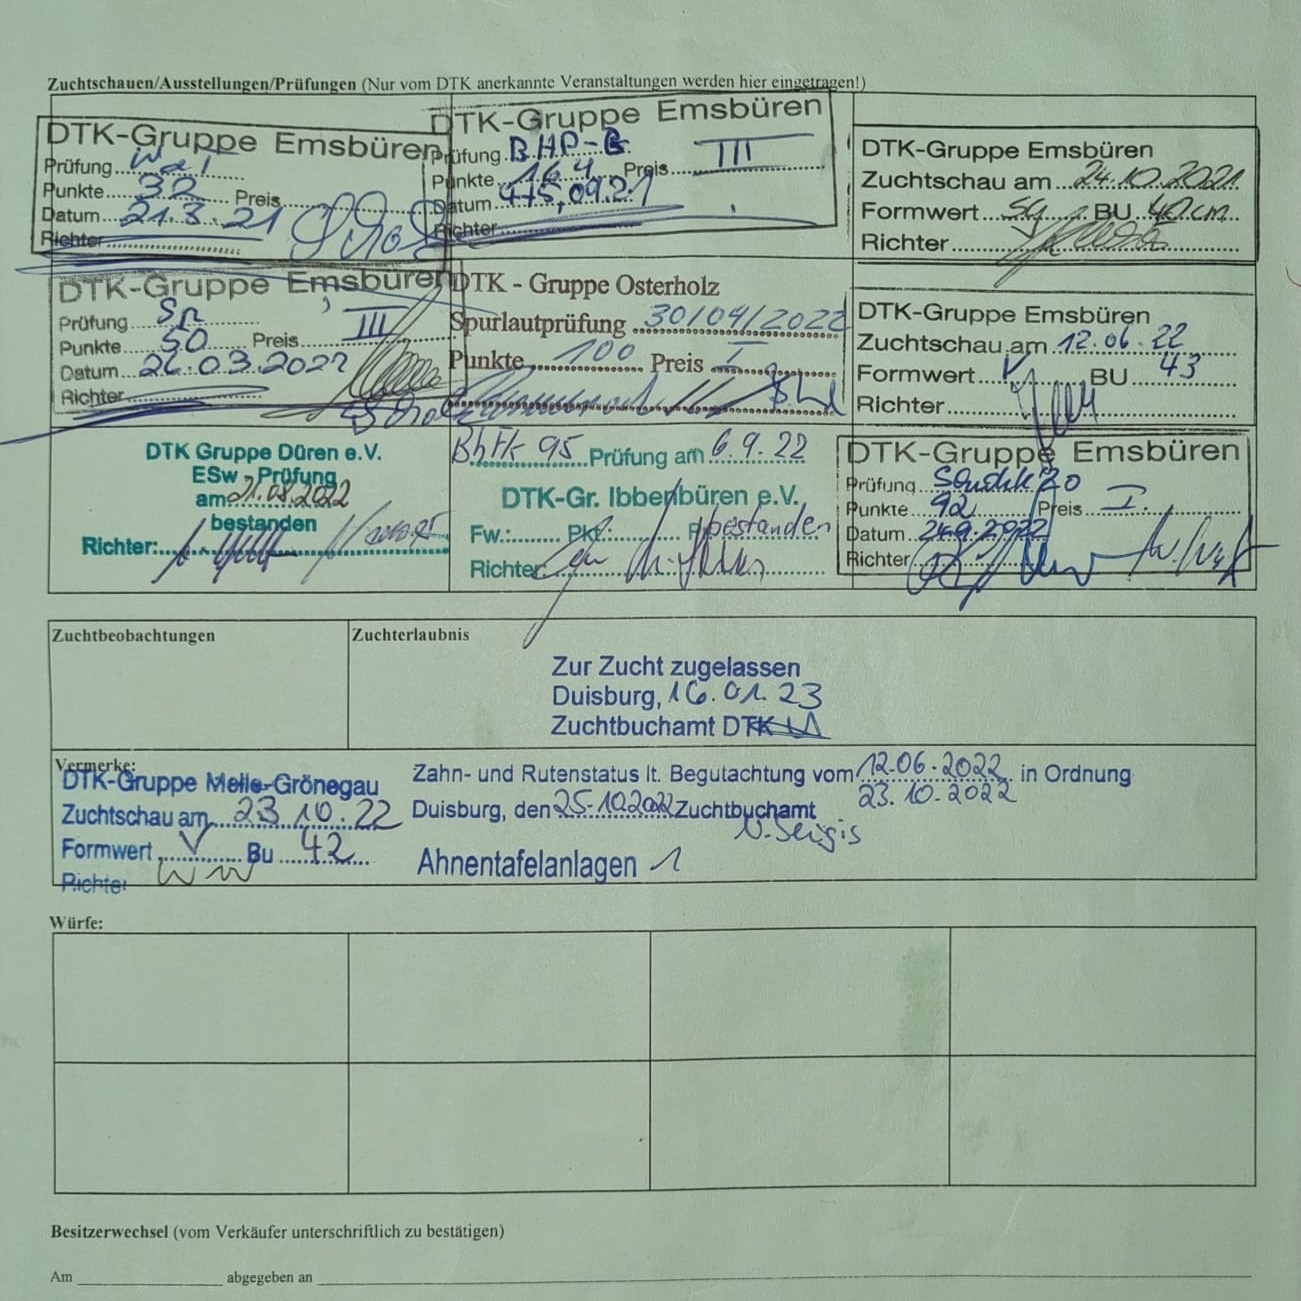 Zuchtschauen/Ausstellungen/Prüfungen (Nur vom DTK anerkannte Veranstaltungen werden hier eingetragen!)
DTK-Gruppe Emsbüren
Prüfung
Punkte 32 Preis
Datum 21.3.21
Richter
DTK-Gruppe Emsbüren
Prüfung BHP-G
Punkte 164 Preis III
Datum
Richter
DTK-Gruppe Emsbüren
Zuchtschau am 24.10.2021
Formwert Sg BU 40cm
Richter
DTK-Gruppe Emsbüren
Prüfung Sp
Punkte 50 Preis III
Datum 26.03.2022
Richter
DTK - Gruppe Osterholz
Spurlautprüfung 30/04/2022
Punkte 100 Preis I
DTK-Gruppe Emsbüren
Zuchtschau am 12.06.22
Formwert V BU 43
Richter
DTK Gruppe Düren e.V.
ESw - Prüfung
am 21.08.2022
bestanden
Richter:
BhFK 95 Prüfung am 6.9.22
DTK-Gr. Ibbenbüren e.V.
Fw.: Pkt.: bestanden
Richter
DTK-Gruppe Emsbüren
Prüfung
Punkte 92 Preis I.
Datum 24.9.2022
Richter
Zuchtbeobachtungen
Zuchterlaubnis
Zur Zucht zugelassen
Duisburg, 16.01.23
Zuchtbuchamt DTK
Vermerke:
DTK-Gruppe Melle-Grönegau
Zuchtschau am 23.10.22
Formwert V Bu 42
Richter
Zahn- und Rutenstatus lt. Begutachtung vom 12.06.2022 in Ordnung
23.10.2022
Duisburg, den 25.10.2022 Zuchtbuchamt
Ahnentafelanlagen 1
Würfe:
Besitzerwechsel (vom Verkäufer unterschriftlich zu bestätigen)
Am abgegeben an